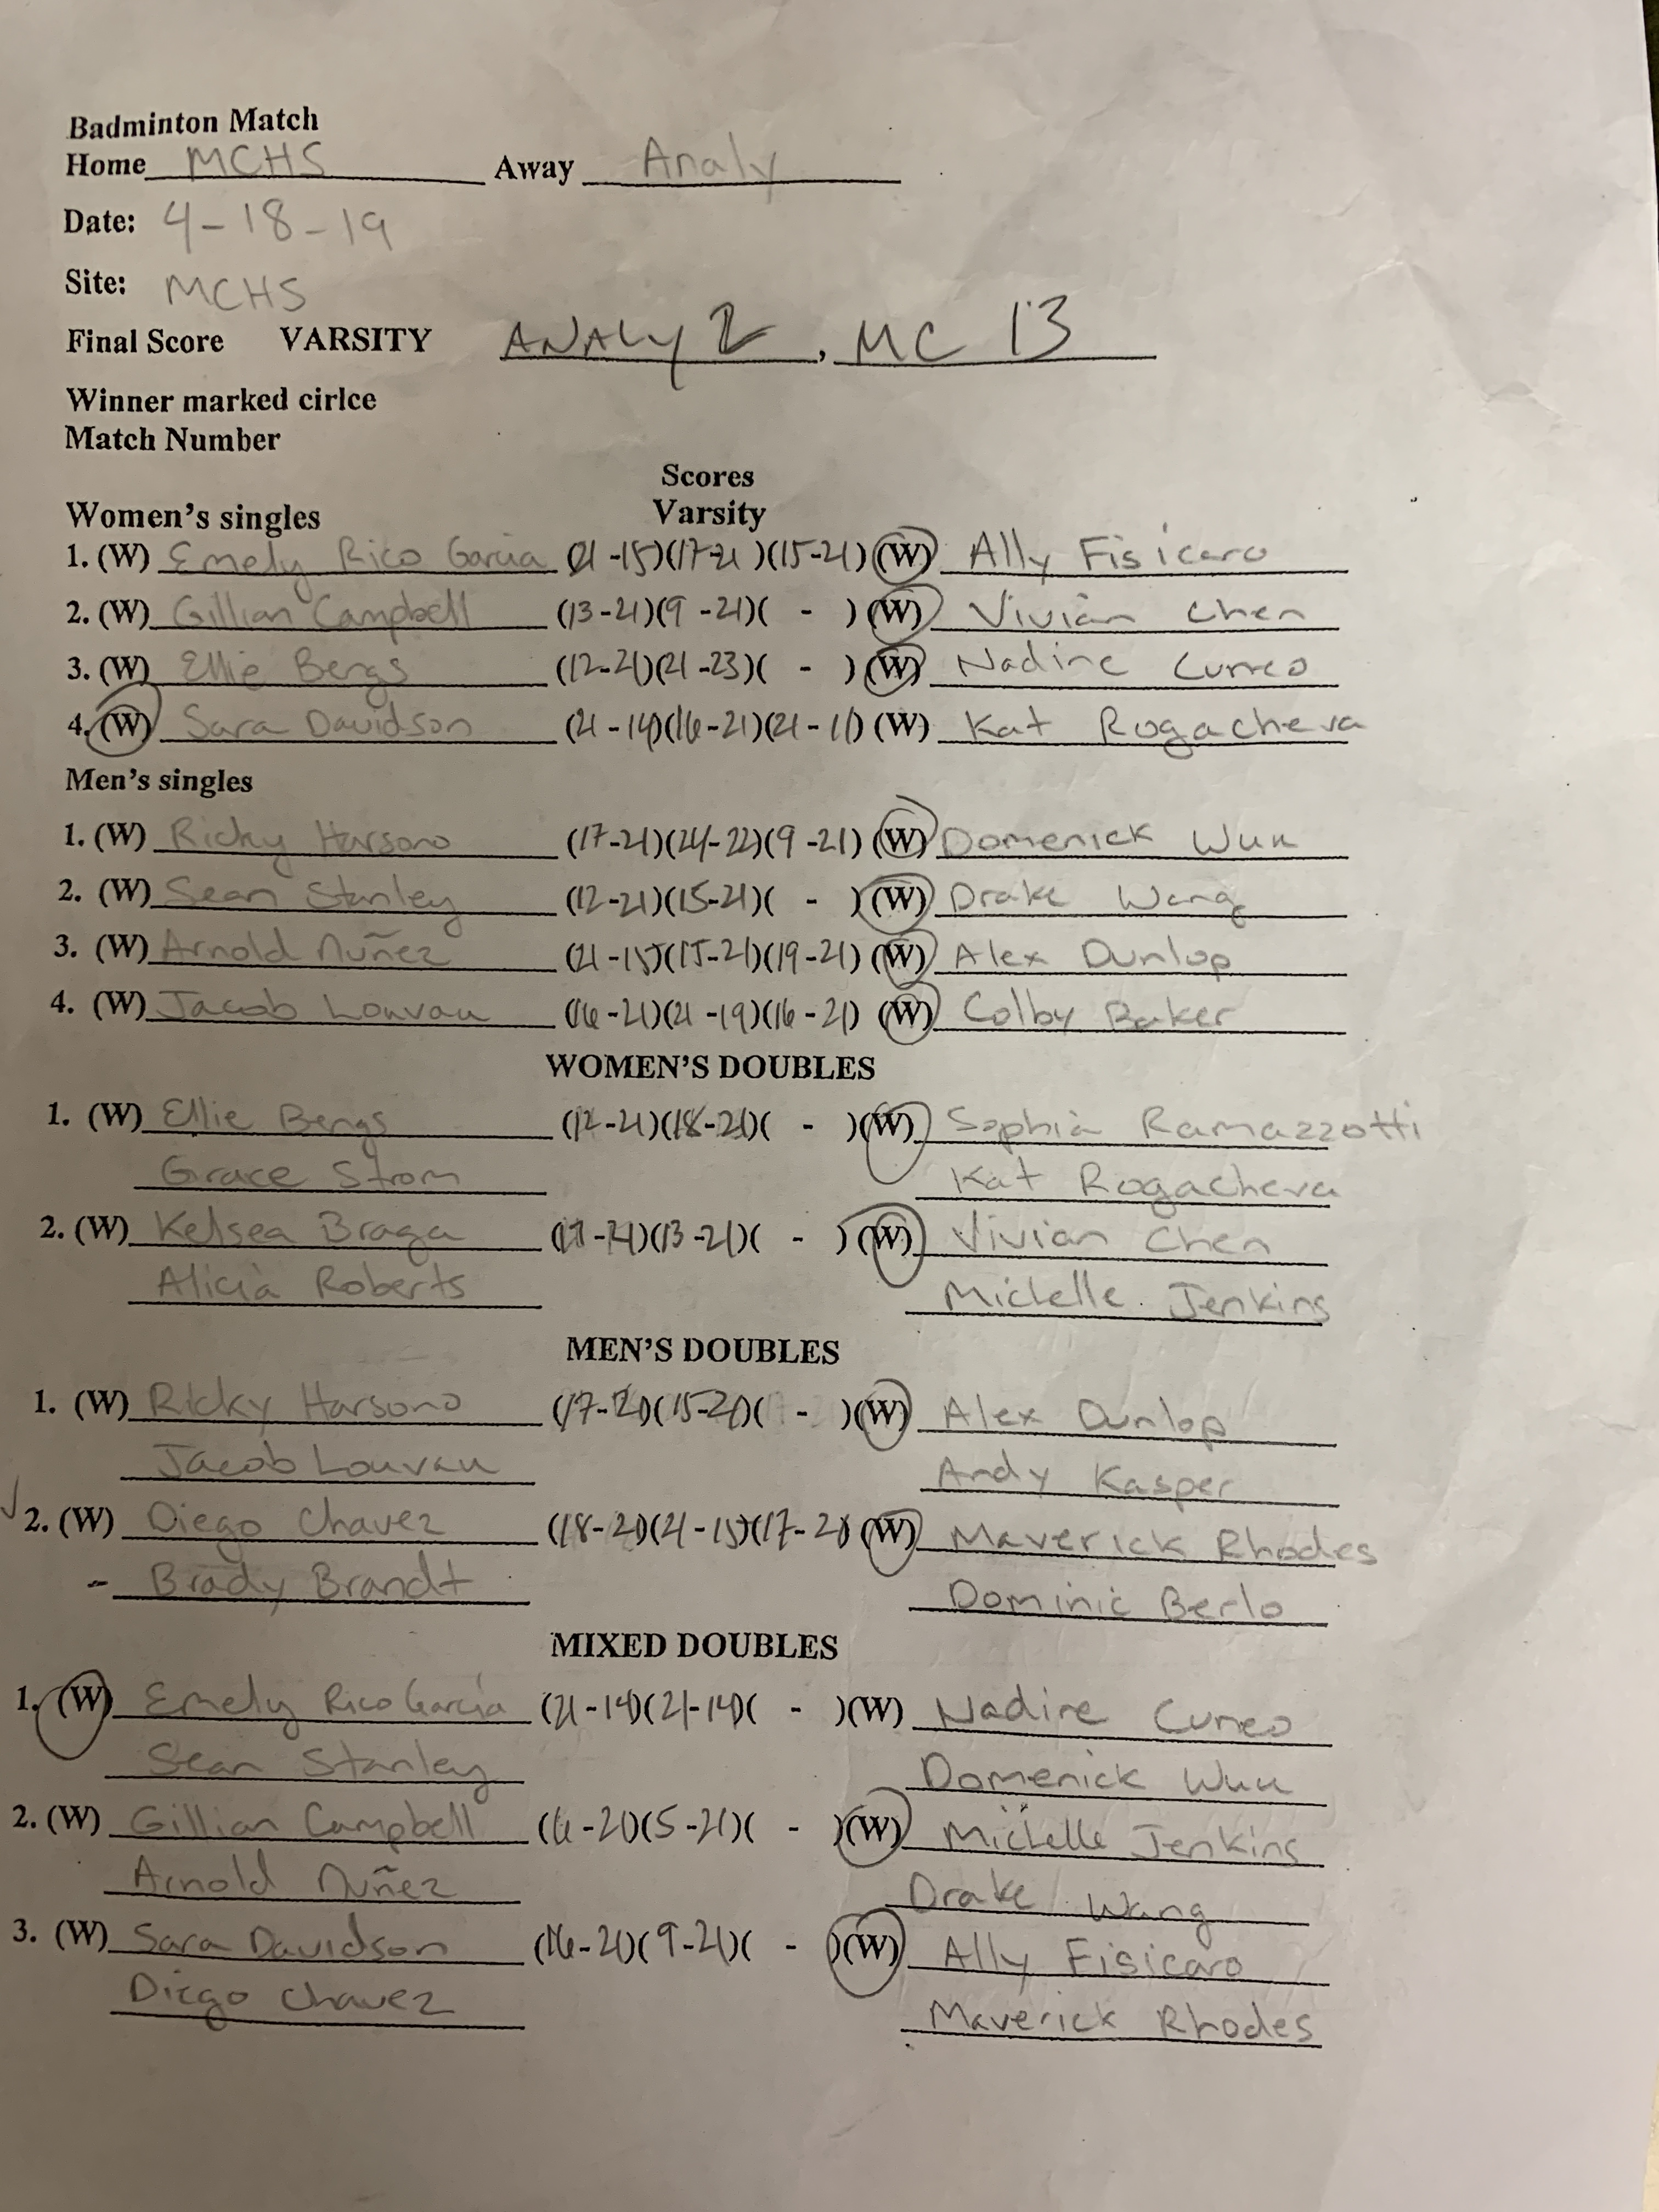 Badminton Match
Home MCHS Away Analy
Date: 4-18-19
Site: MCHS
Final Score VARSITY ANALY 2, MC 13
Winner marked cirlce
Match Number
Scores
Women's singles Varsity
1. (W) Emely Rico Garcia (21-15)(17-21)(15-21) (W) Ally Fisicaro
2. (W) Gillian Campbell (13-21)(9-21)( - ) (W) Vivian Chen
3. (W) Ellie Bergs (12-21)(21-23)( - ) (W) Nadine Cuneo
4. (W) Sara Davidson (21-14)(16-21)(21-11) (W) Kat Rogacheva
Men's singles
1. (W) Ricky Harsono (17-21)(24-22)(9-21) (W) Domenick Wuu
2. (W) Sean Stanley (12-21)(15-21)( - ) (W) Drake Wang
3. (W) Arnold Nuñez (21-15)(15-21)(19-21) (W) Alex Dunlop
4. (W) Jacob Louvau (16-21)(21-19)(16-21) (W) Colby Baker
WOMEN'S DOUBLES
1. (W) Ellie Bergs (12-21)(18-21)( - )(W) Sophia Ramazzotti
Grace Strom Kat Rogacheva
2. (W) Kelsea Braga (13-21)( - )(W) Vivian Chen
Alicia Roberts Michelle Jenkins
MEN'S DOUBLES
1. (W) Ricky Harsono (17-21)(15-21)( - )(W) Alex Dunlop
Jacob Louvau Andy Kasper
2. (W) Diego Chavez (18-21)(21-15)(17-21) (W) Maverick Rhodes
- Brady Brandt Dominic Berlo
MIXED DOUBLES
1. (W) Emely Rico Garcia (21-14)(21-14)( - )(W) Nadine Cuneo
Sean Stanley Domenick Wuu
2. (W) Gillian Campbell (5-21)( - )(W) Michelle Jenkins
Arnold Nuñez Drake Wang
3. (W) Sara Davidson (16-21)(9-21)( - )(W) Ally Fisicaro
Diego Chavez Maverick Rhodes